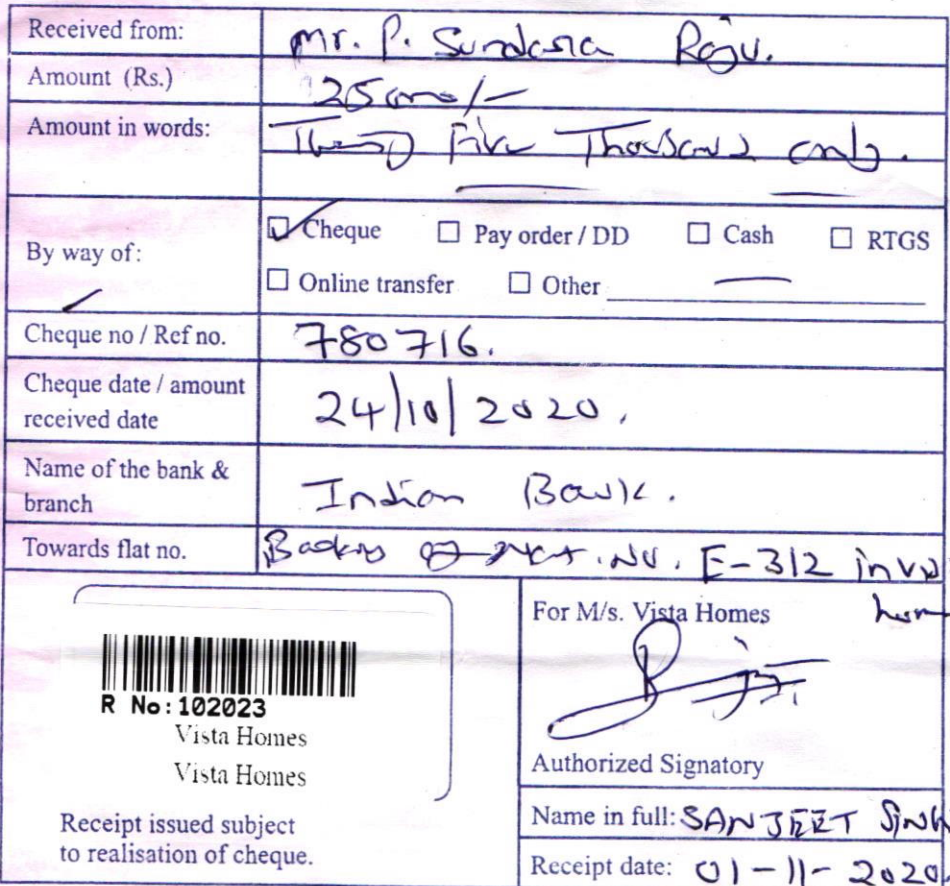 Received from: Mr. P. Sundara Raju.
Amount (Rs.) 25000/-
Amount in words: Five Thousand only.
By way of: Cheque Pay order / DD Cash RTGS
Online transfer Other
Cheque no / Ref no. 780716.
Cheque date / amount received date 24/10/2020.
Name of the bank & branch Indian Bank.
Towards flat no. E-312 in
For M/s. Vista Homes
R No:102023
Vista Homes
Vista Homes
Authorized Signatory
Receipt issued subject
to realisation of cheque.
Name in full: SANJEET Singh
Receipt date: 01-11-2020